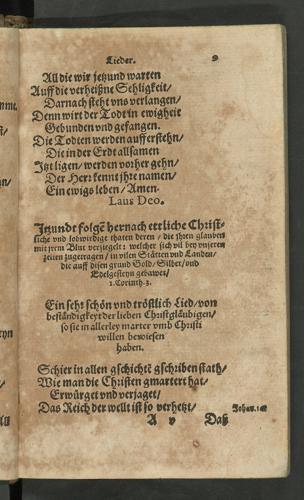 Lieder. 9
All die wir jetzund warten
Auff die verheißne Sehligkeit/
Darnach steht vns verlangen/
Denn wirt der Todt in ewigheit
Gebunden vnd gefangen.
Die Todten werden aufferstehn/
Die in der Erdt allsamen
Jtzt ligen/ werden vorher gehn/
Der Herr kennt jhre namen/
Ein ewigs leben/ Amen.
Laus Deo.
Jtzundt folgẽ hernach ettliche Christ-
liche vnd lobwirdige thaten deren/ die jhren glauben
mit jrem Blut verziegelt: welcher sich vil bey vnseren
zeiten zugetragen/ in vilen Stätten vnd Landen/
die auff disen grund Gold/ Silber/ vnd
Edelgesteyn gebawet/
1. Corinth. 3.
Ein sehr schön vnd tröstlich Lied/ von
beständigkeyt der lieben Christgläubigen/
so sie in allerley marter vmb Christi
willen bewiesen
haben.
Schier in allen gschichtẽ gschriben stath/
Wie man die Christen gmartert hat/
Erwürget vnd verjaget/
Das Reich der wellt ist so verhetzt/ Johan.
A v Daß